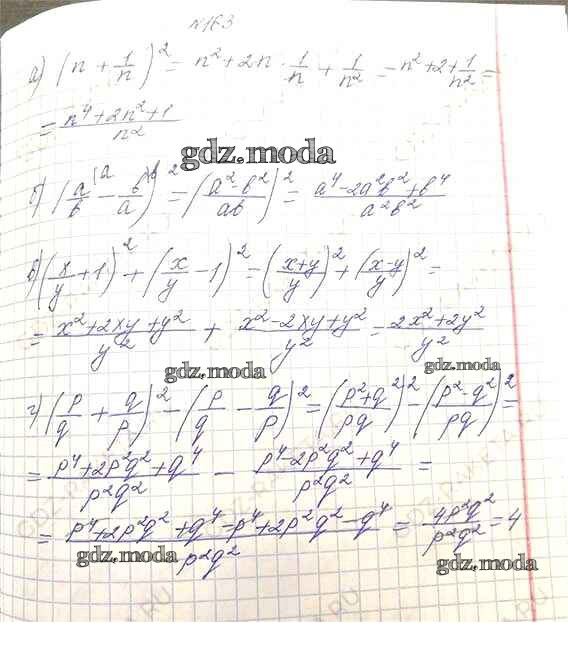 №163
а) (n + 1/n)² = n² + 2n · 1/n + 1/n² = n² + 2 + 1/n² =
= (n⁴ + 2n² + 1)/n²
gdz.moda
б) (a/b ⁽ᵃ - b/a ⁽ᵇ)² = ((a² - b²)/ab)² = (a⁴ - 2a²b² + b⁴)/a²b²
в) (x/y + 1)² + (x/y - 1)² = ((x+y)/y)² + ((x-y)/y)² =
= (x² + 2xy + y²)/y² + (x² - 2xy + y²)/y² = (2x² + 2y²)/y²
gdz.moda gdz.moda
г) (p/q + q/p)² - (p/q - q/p)² = ((p² + q²)/pq)² - ((p² - q²)/pq)² =
= (p⁴ + 2p²q² + q⁴)/p²q² - (p⁴ - 2p²q² + q⁴)/p²q² =
= (p⁴ + 2p²q² + q⁴ - p⁴ + 2p²q² - q⁴)/p²q² = 4p²q²/p²q² = 4
gdz.moda gdz.moda